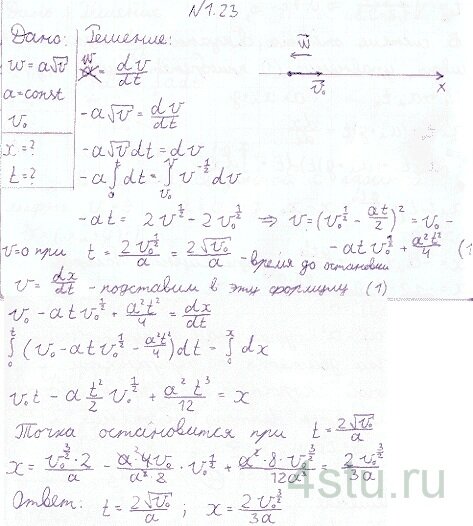 N1.23
Дано: Решение:
w = a√v
w a = dv/dt
w⃗
a = const
v₀
v⃗₀
x
-a√v = dv/dt
x = ?
-a√v dt = dv
t = ?
-a ∫₀ᵗ dt = ∫ᵥ₀ᵛ v^(-1/2) dv
-at = 2v^(1/2) - 2v₀^(1/2) ⇒ v = (v₀^(1/2) - at/2)² = v₀ -
- at v₀^(1/2) + a²t²/4 (1
v=0 при t = 2v₀^(1/2)/a = 2√v₀/a - время до остановки
v = dx/dt - подставим в эту формулу (1)
v₀ - at v₀^(1/2) + a²t²/4 = dx/dt
∫₀ᵗ (v₀ - at v₀^(1/2) - a²t²/4) dt = ∫₀ˣ dx
v₀t - a t²/2 v₀^(1/2) + a²t³/12 = x
Точка остановится при t = 2√v₀/a
x = v₀^(3/2)·2/a - a·4v₀/a²·2 · v₀^(1/2) + a²·8·v₀^(3/2)/12a³ = 2v₀^(3/2)/3a
Ответ: t = 2√v₀/a ; x = 2v₀^(3/2)/3a
4stu.ru